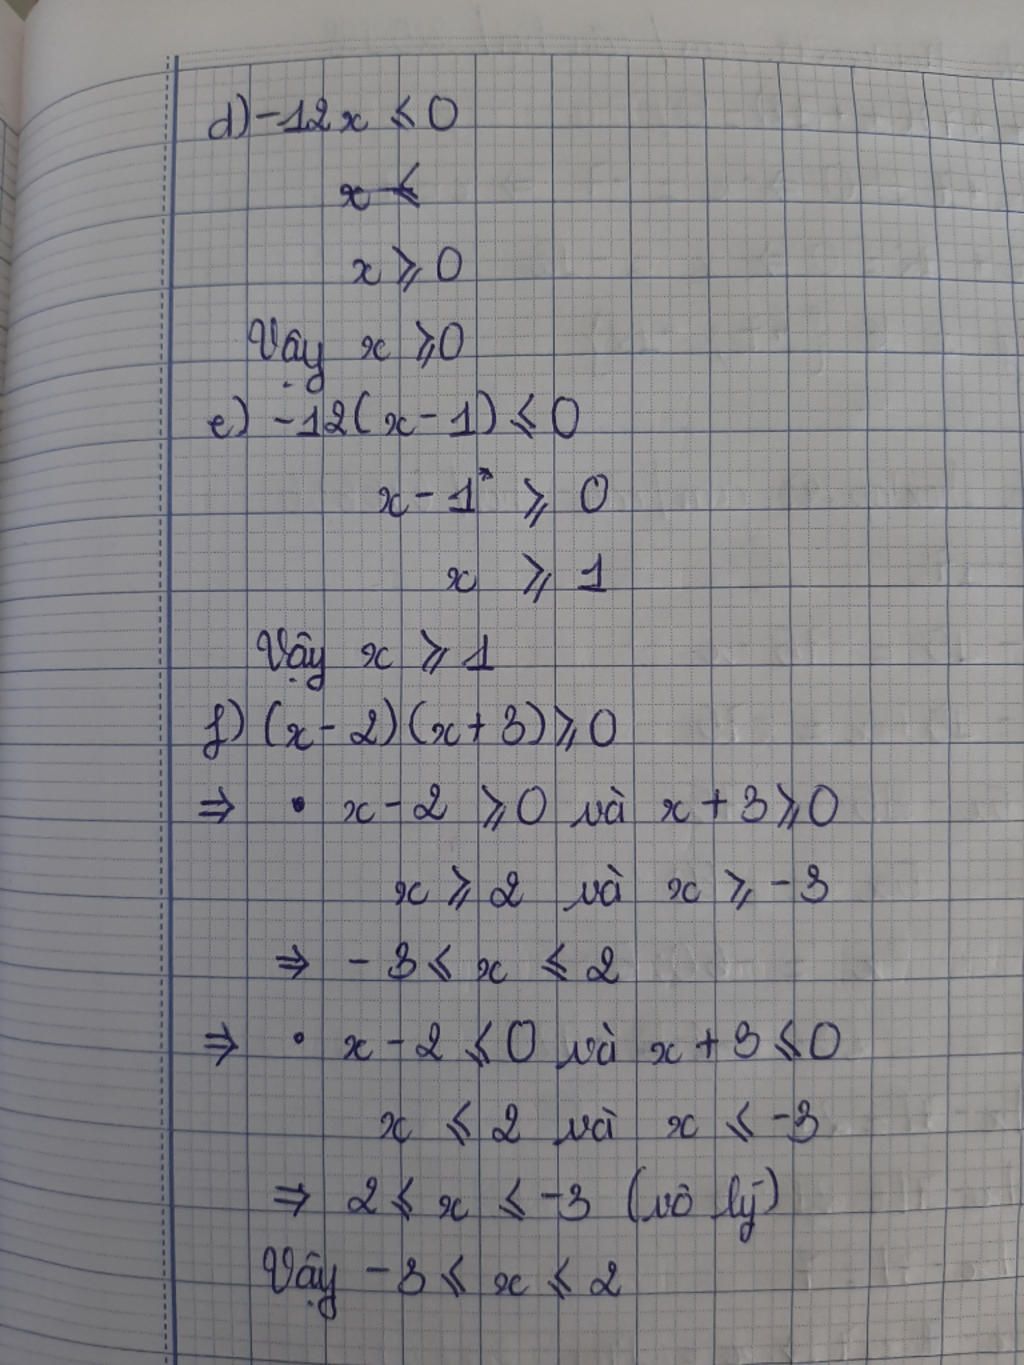 d) -12x ⩽ 0
x ⩽
x ⩾ 0
Vậy x ⩾ 0
e) -12(x - 1) ⩽ 0
x - 1 ⩾ 0
x ⩾ 1
Vậy x ⩾ 1
f) (x - 2)(x + 3) ⩾ 0
⇒ • x - 2 ⩾ 0 và x + 3 ⩾ 0
x ⩾ 2 và x ⩾ -3
⇒ -3 ⩽ x ⩽ 2
⇒ • x - 2 ⩽ 0 và x + 3 ⩽ 0
x ⩽ 2 và x ⩽ -3
⇒ 2 ⩽ x ⩽ -3 (vô lý)
Vậy -3 ⩽ x ⩽ 2